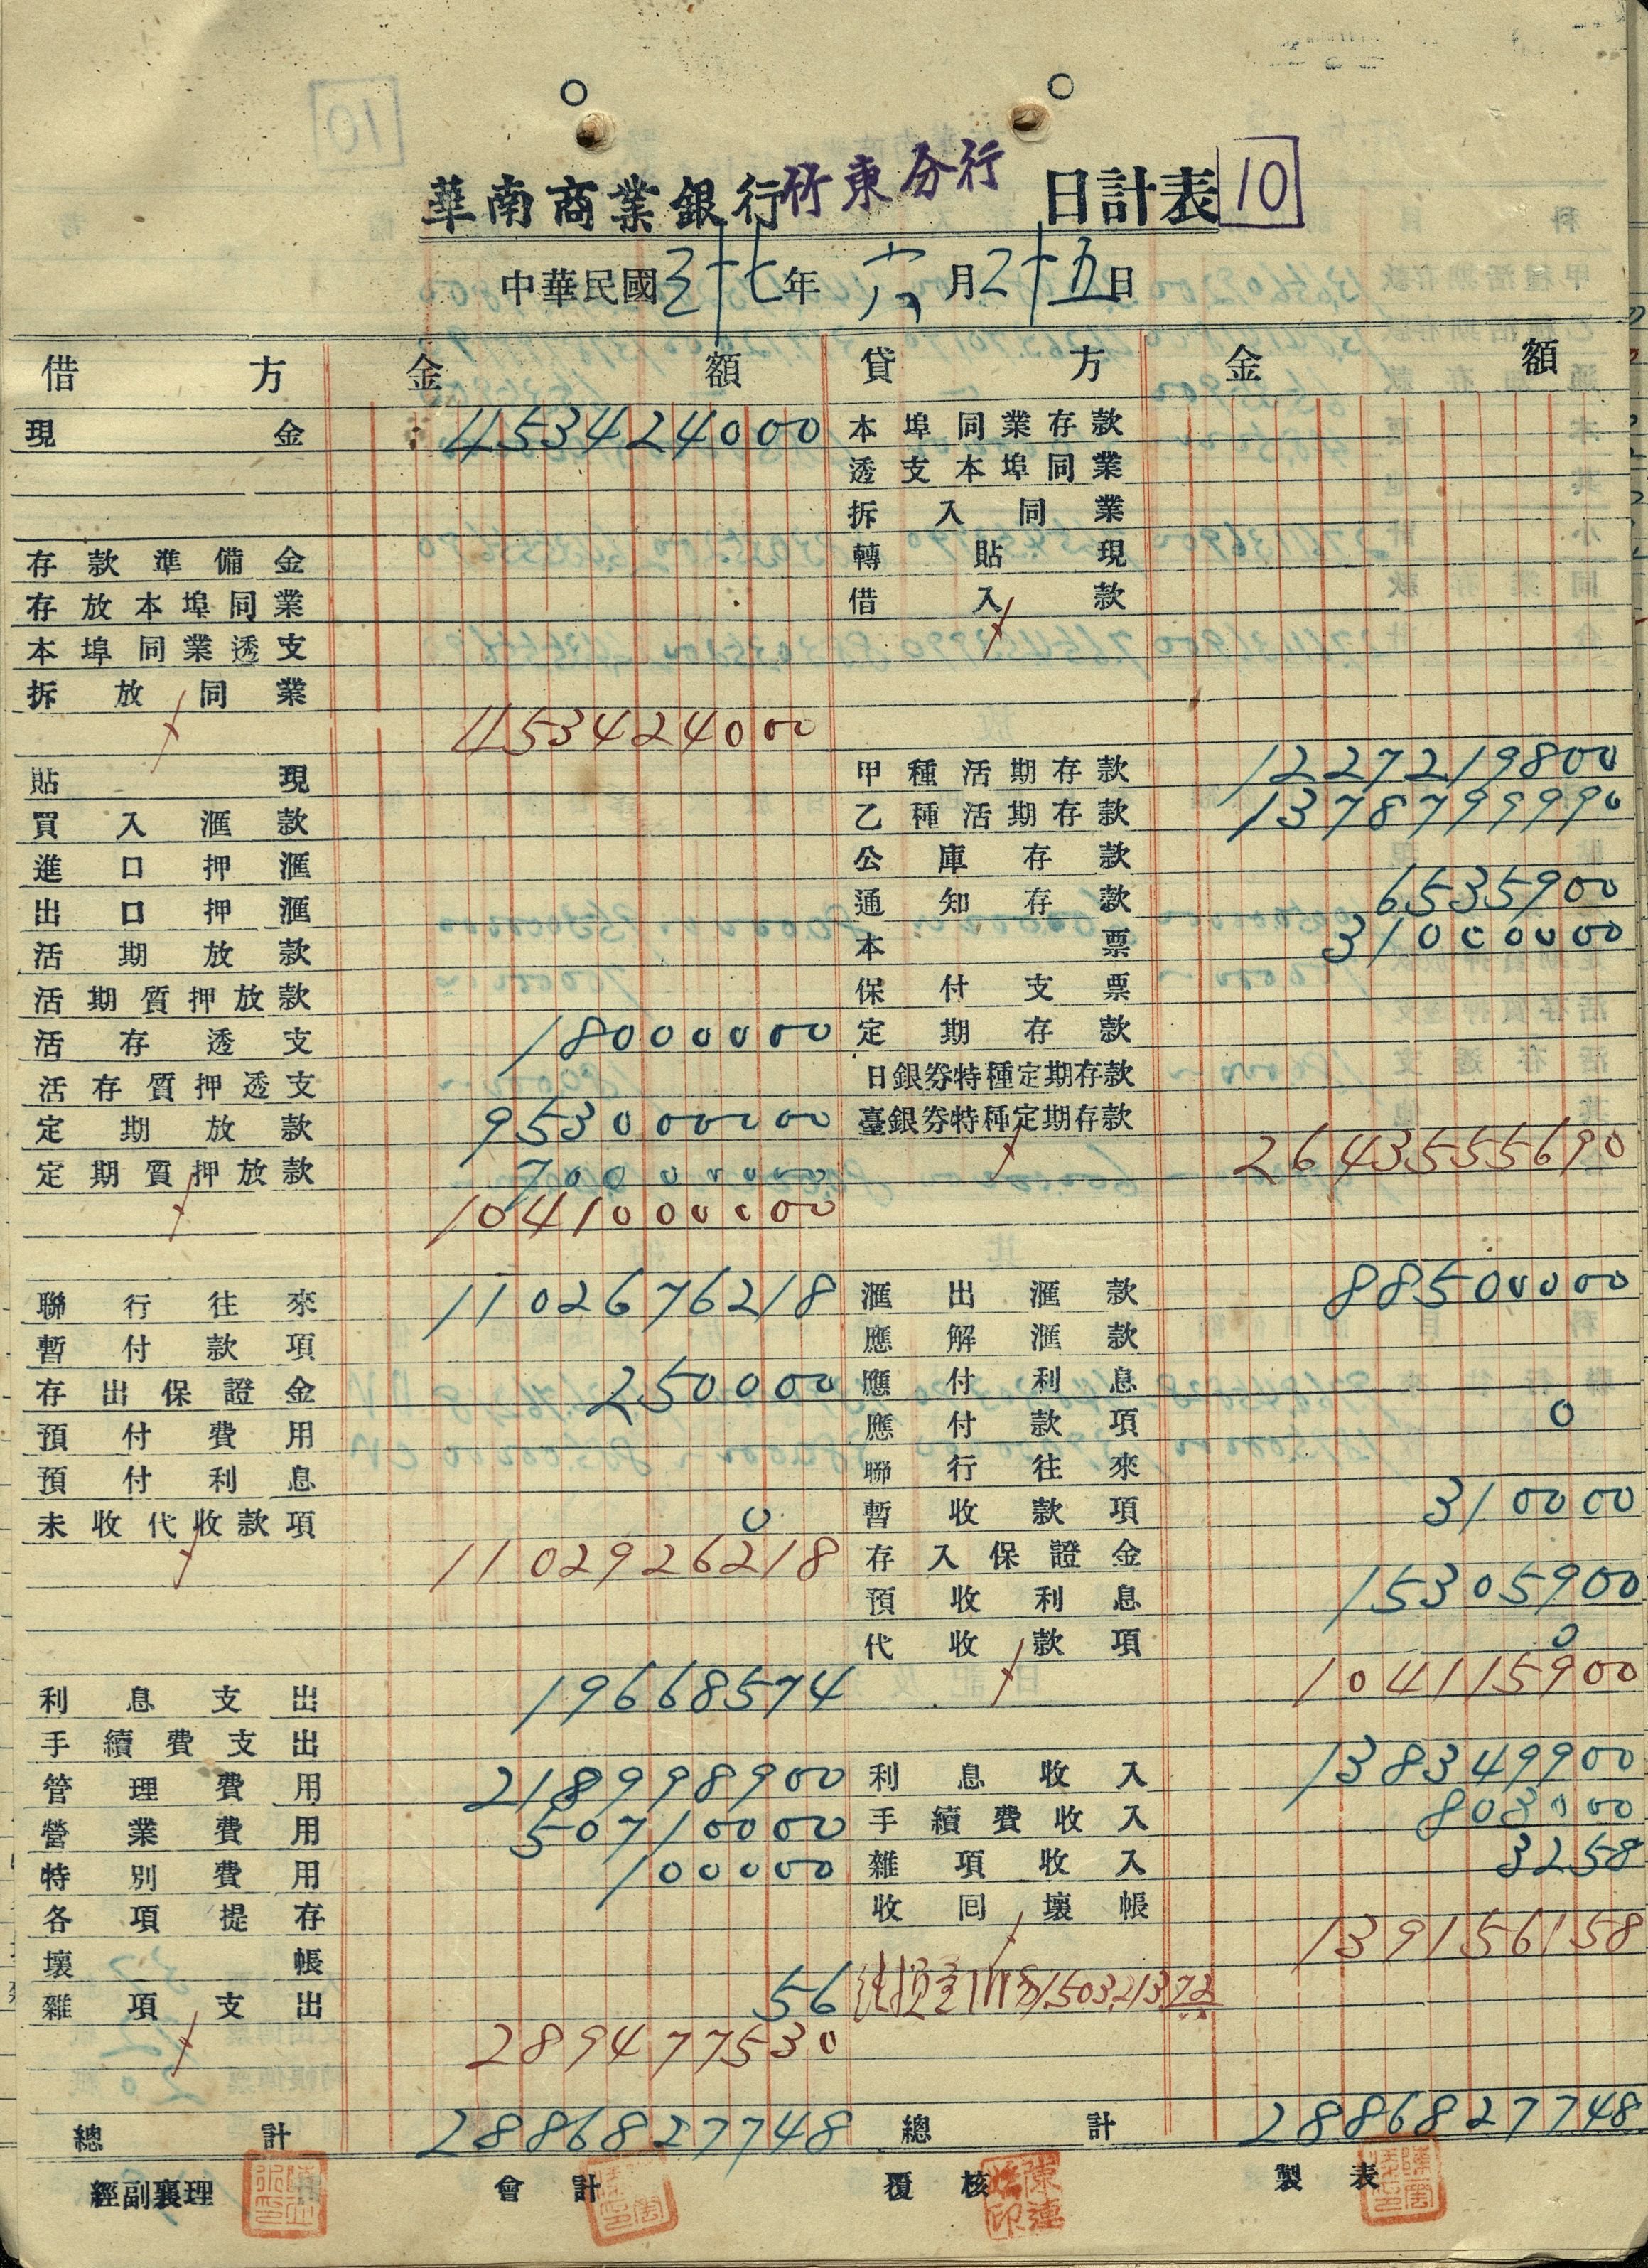 華南商業銀行竹東分行 日計表 10
中華民國三十七年 六月二十五日
借方 金額 貸方 金額
現金 453424000 本埠同業存款
透支本埠同業
拆入同業
存款準備金 轉貼現
存放本埠同業 借入款
本埠同業透支
拆放同業
453424000
貼現 甲種活期存款 1227219800
買入滙款 乙種活期存款 1378799990
進口押滙 公庫存款
出口押滙 通知存款 6535900
活期放款 本票 31000000
活期質押放款 保付支票
活存透支 18000000 定期存款
活存質押透支 日銀券特種定期存款
定期放款 953000000 臺銀券特種定期存款
定期質押放款 70000000 2643555690
1041000000
聯行往來 1102676218 滙出滙款 88500000
暫付款項 應解滙款
存出保證金 250000 應付利息
預付費用 應付款項 0
預付利息 聯行往來
未收代收款項 0 暫收款項 310000
1102926218 存入保證金
預收利息 15305900
代收款項 0
利息支出 19668574 104115900
手續費支出
管理費用 218998900 利息收入 138349900
營業費用 50710000 手續費收入 803000
特別費用 100000 雜項收入 3258
各項提存 收回壞帳
壞帳 139156158
雜項支出 56 150321372
289477530
總計 2886827748 總計 2886827748
經副襄理 會計 覆核 製表